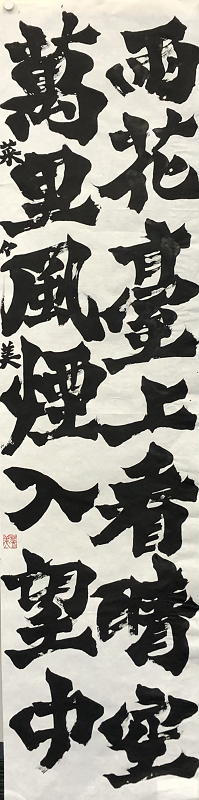 雨花臺上看晴空
萬里風煙入望中
菜々美